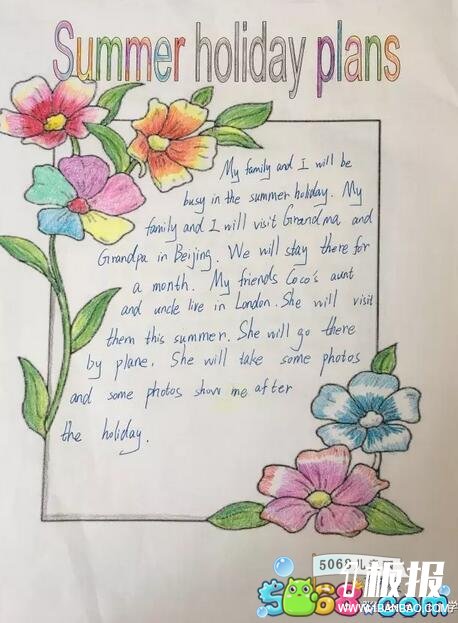 Summer holiday plans
My family and I will be
busy in the summer holiday. My
family and I will visit Grandma and
Grandpa in Beijing. We will stay there for
a month. My friends Coco's aunt
and uncle live in London. She will visit
them this summer. She will go there
by plane. She will take some photos
and some photos show me after
the holiday.
5068儿
板报
5068.com
WWW.1BANBAO.COM
学